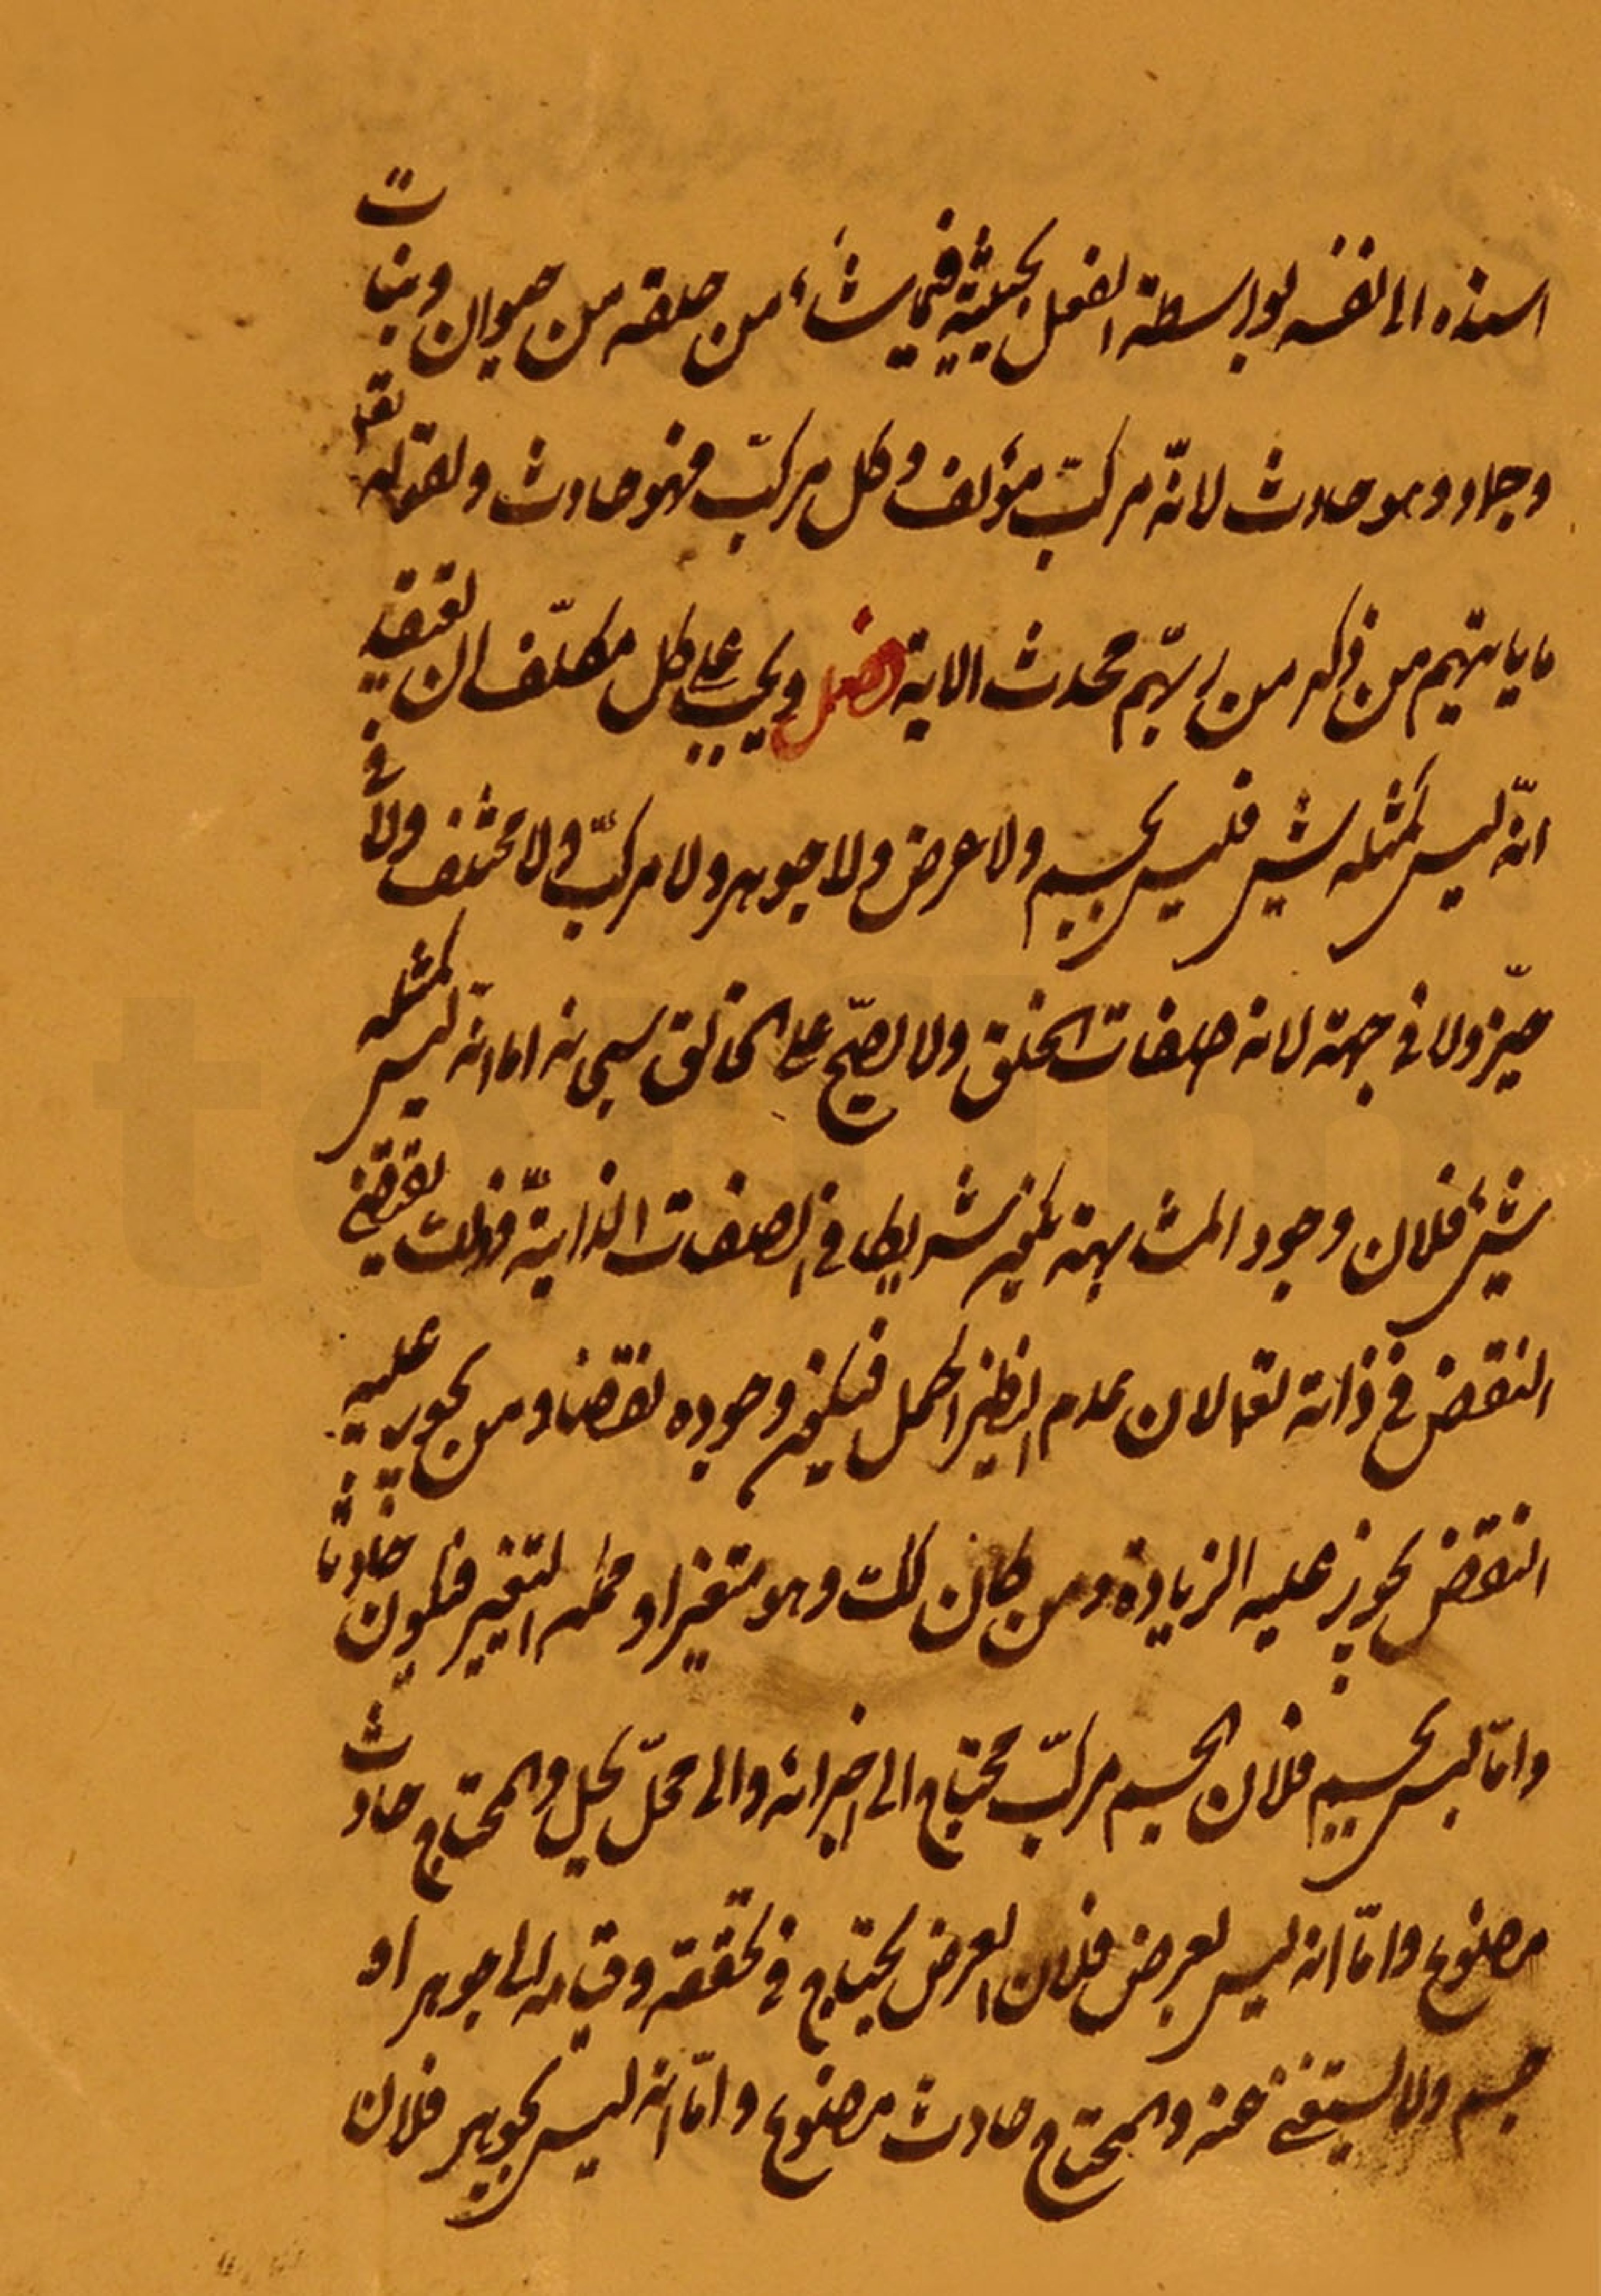 اسنده الى نفسه بواسطة الفعل بحيثية فيما يشاء من خلقه من حيوان ونبات
وجماد وهو حادث لانّه مركّب مؤلف وكل مركّب فهو حادث ولقوله تع
ما ياتيهم من ذكر من ربّهم محدث الاية فصل ويجب على كل مكلّف ان يعتقد
انّه ليس كمثله شيئ فليس بجسم ولا عرض ولا جوهر ولا مركّب ولا مختلف ولا فى
حيّز ولا فى جهة لانه صفات الخلق ولا يصحّ على الخالق سبحانه اما انّه ليس كمثله
شيئ فلان وجود المشابهة يكون شريكا فى الصفات الذاتيّة وذلك يقتضى
النقض فى ذاته تعالى لان عدم النظير اكمل فيكون وجوده نقضا ومن يجوز عليه
النقض يجوز عليه الزيادة ومن كان كك وهو متغير او محله التغير فيكون حادثا
وامّا ليس بجسم فلان الجسم مركّب محتاج الى اجزائه والى محلّ يحل والمحتاج حادث
مصنوع وامّا انه ليس بعرض فلان العرض يحتاج فى تحققه وقيامه الى جوهر او
جسم ولا يستغنى عنه والمحتاج حادث مصنوع وامّا انه ليس بجوهر فلان